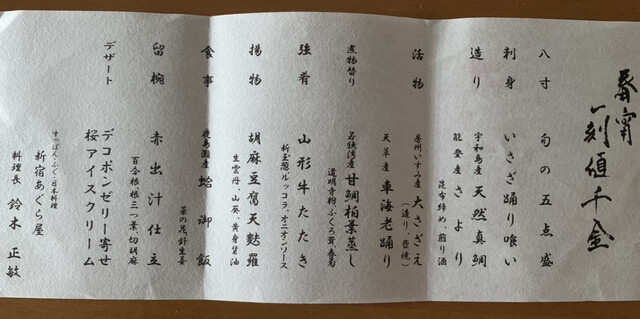 春宵一刻値千金
八寸　旬の五点盛
刺身　いさざ踊り喰い
造り　宇和島産 天然真鯛
能登産 さより
昆布締め、煎り酒
活物　房州いすみ産 大さざえ
（造り、壺焼）
天草産 車海老踊り
煮物替り　若狭湾産 甘鯛柏葉蒸し
道明寺粉、ふくろ茸、春菊
強肴　山形牛たたき
新玉葱、ルッコラ、オニオンソース
揚物　胡麻豆腐天麩羅
生雲丹、山葵、黄身醤油
食事　鹿島灘産 蛤御飯
菜の花、針生姜
留椀　赤出汁仕立
百合根、根三つ葉、切胡麻
デザート　デコポンゼリー寄せ
桜アイスクリーム
すっぽん・ふぐ・日本料理
新宿あぐら屋
料理長 鈴木 正敏